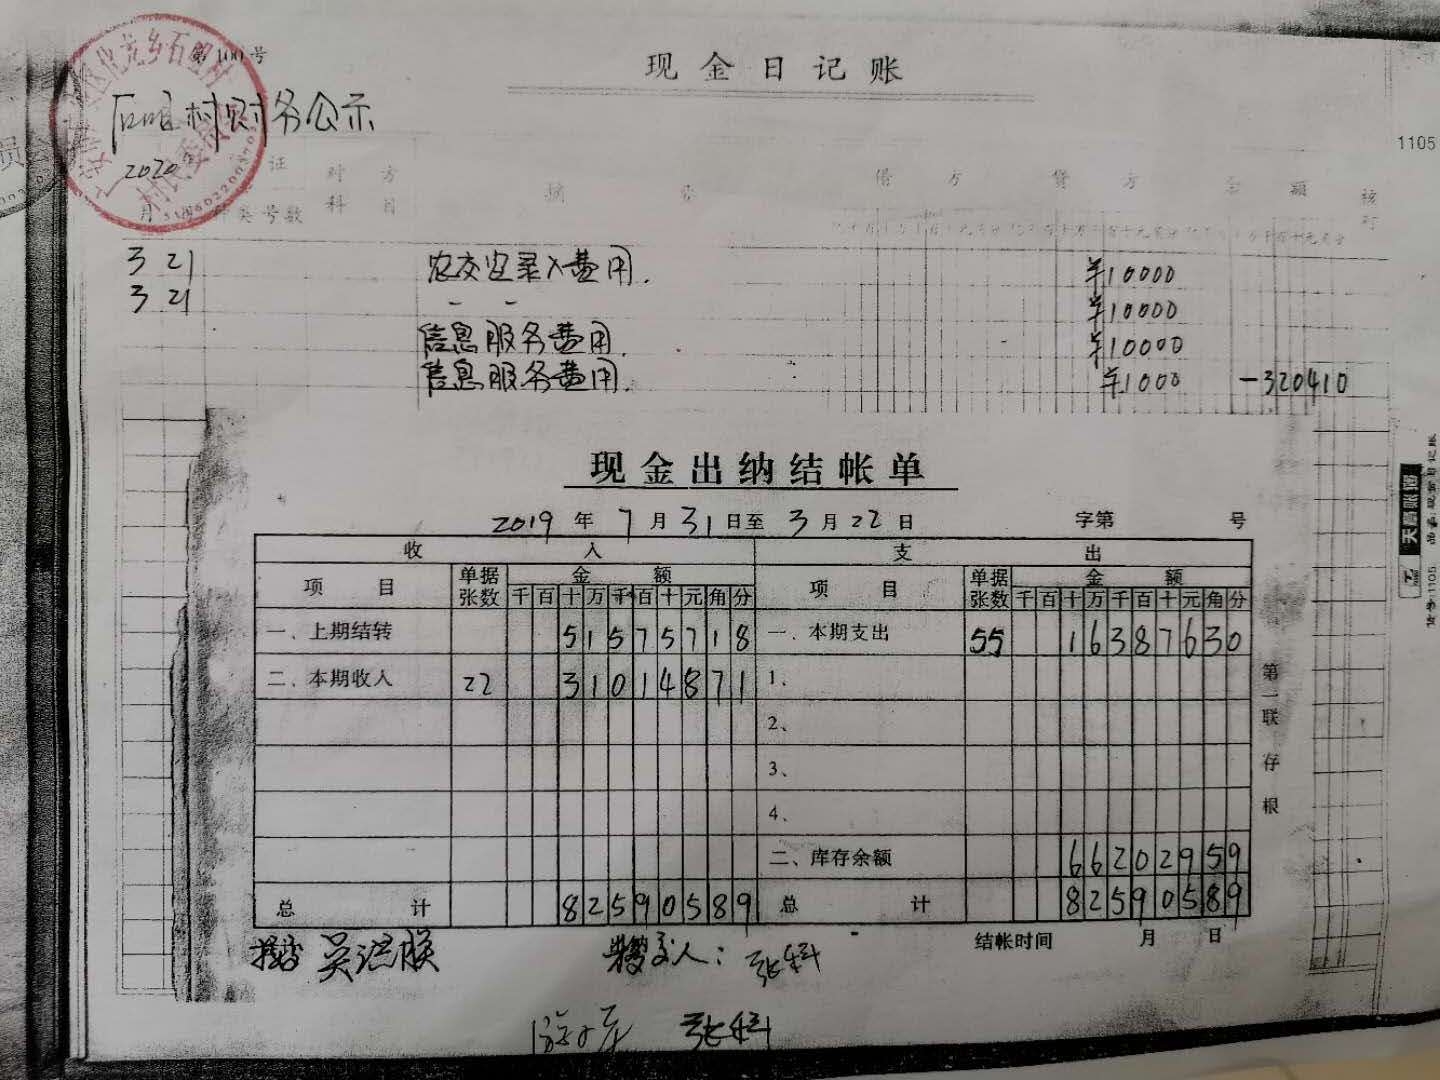 第100号
现金日记账
村财务公示
2020
1105
证 对方 摘 借方 贷方 金额 核
月 种类 号数 科目 对
3 21 农交定录入费用. ¥10000
3 21 - - ¥10000
信息服务费用. ¥10000
信息服务费用. ¥1000 -320410
现金出纳结帐单
2019年7月31日至3月22日 字第 号
收入 支出
项目 单据张数 金额 项目 单据张数 金额
千百十万千百十元角分 千百十万千百十元角分
一、上期结转 51575718 一、本期支出 55 16387630
二、本期收入 22 31014871 1、
2、
3、
4、
二、库存余额 66202959
总计 82590589 总计 82590589
结帐时间 月 日
第一联存根
张科
张科